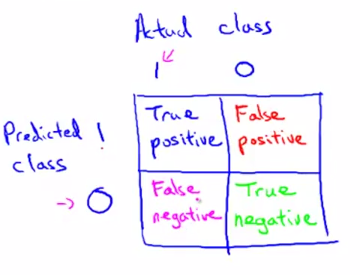 Actual class
1 0
Predicted 1
class
0
True positive
False positive
False negative
True negative